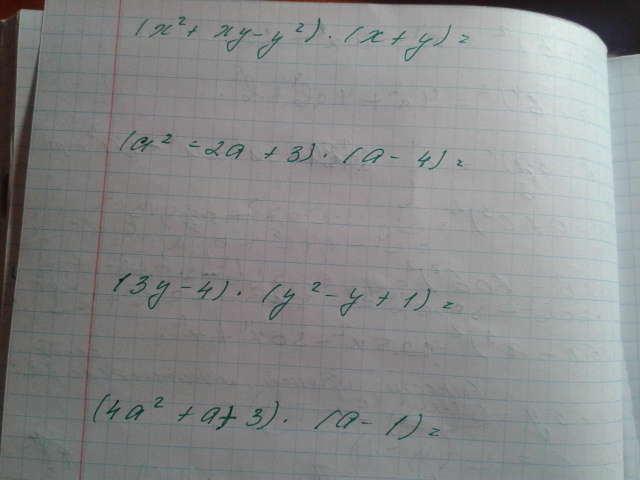 (x² + xy - y²) · (x + y) =
(a² - 2a + 3) · (a - 4) =
(3y - 4) · (y² - y + 1) =
(4a² + a + 3) · (a - 1) =